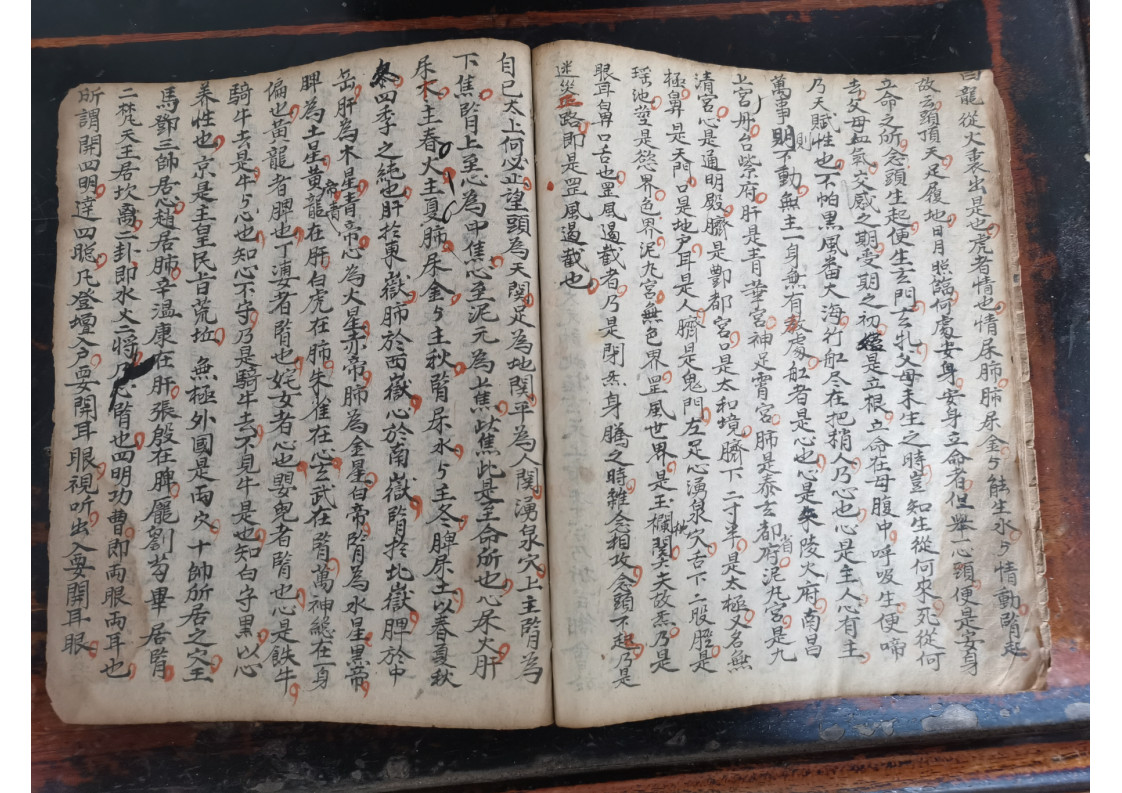 白龍從火裏出是也虎者情也情屬肺肺屬金金能生水水情動腎起
故云頭頂天足履地日月照臨何處安身安身立命者但舉一心頭便是安身
立命之所念頭生起便生玄門玄牝父母未生之時豈知生從何來死從何
去父母血氣交感之期受胡之初是立根立命在母腹中呼吸生便啼
乃天賦性也不怕黑風番大海行舡尽在把稍人乃心也心是主人心有主
萬事明則不動無主一身無有處舡者是心也心是朱陵火府南昌
上宮丹台紫府肝是青華宮神足霄宮肺是泰玄都省府泥丸宮是九
清宮心是通明殿臍是酆都宮是太和境臍下二寸半是太極又名無
極鼻是天門口是地戶耳是人臍是鬼門左足心湧泉穴舌下二股脛是
瑶池望是慾界色界泥丸宮無色界罡風世界是玉欄関夫故炁乃是
眼耳鼻口舌也罡風遏截者乃是閉炁身騰之時雜念相攻念頭不起乃是
迷災正路即是罡風遏截也
自己太上何必正望頭為天関足為地関平為人関湧泉穴上主腎為
下焦腎上至心為中焦心至泥元為上焦此焦此是至命所也心屬火肝
屬木主春火主夏肺屬金主秋腎屬水主冬脾屬土以春夏秋
冬四季之純也肝於東嶽肺於西嶽心於南嶽腎於北嶽脾於中
岳肝為木星青帝心為火星赤帝肺為金星白帝腎為水星黑帝
脾為土星黄龍在肝白虎在肺朱雀在心玄武在腎萬神總在一身
偏也黄龍者脾也丁瀆者腎也姹女者心也嬰兒者腎也心是鉄牛
騎牛去是牛心也知心不守乃是騎牛去不見牛是也知白守黑以心
养性也京是玉皇民自荒坵無極外國是両穴十帥所居之穴王
馬鄧三帥居心趙居肺辛溫康在肝張殷在脾龐劉苟畢居腎
二梵天王居坎離二卦即水火二將乃心腎也四明功曹即両眼両耳也
所謂開四明達四聡凡登壇入户要開耳眼視听出入要関耳眼